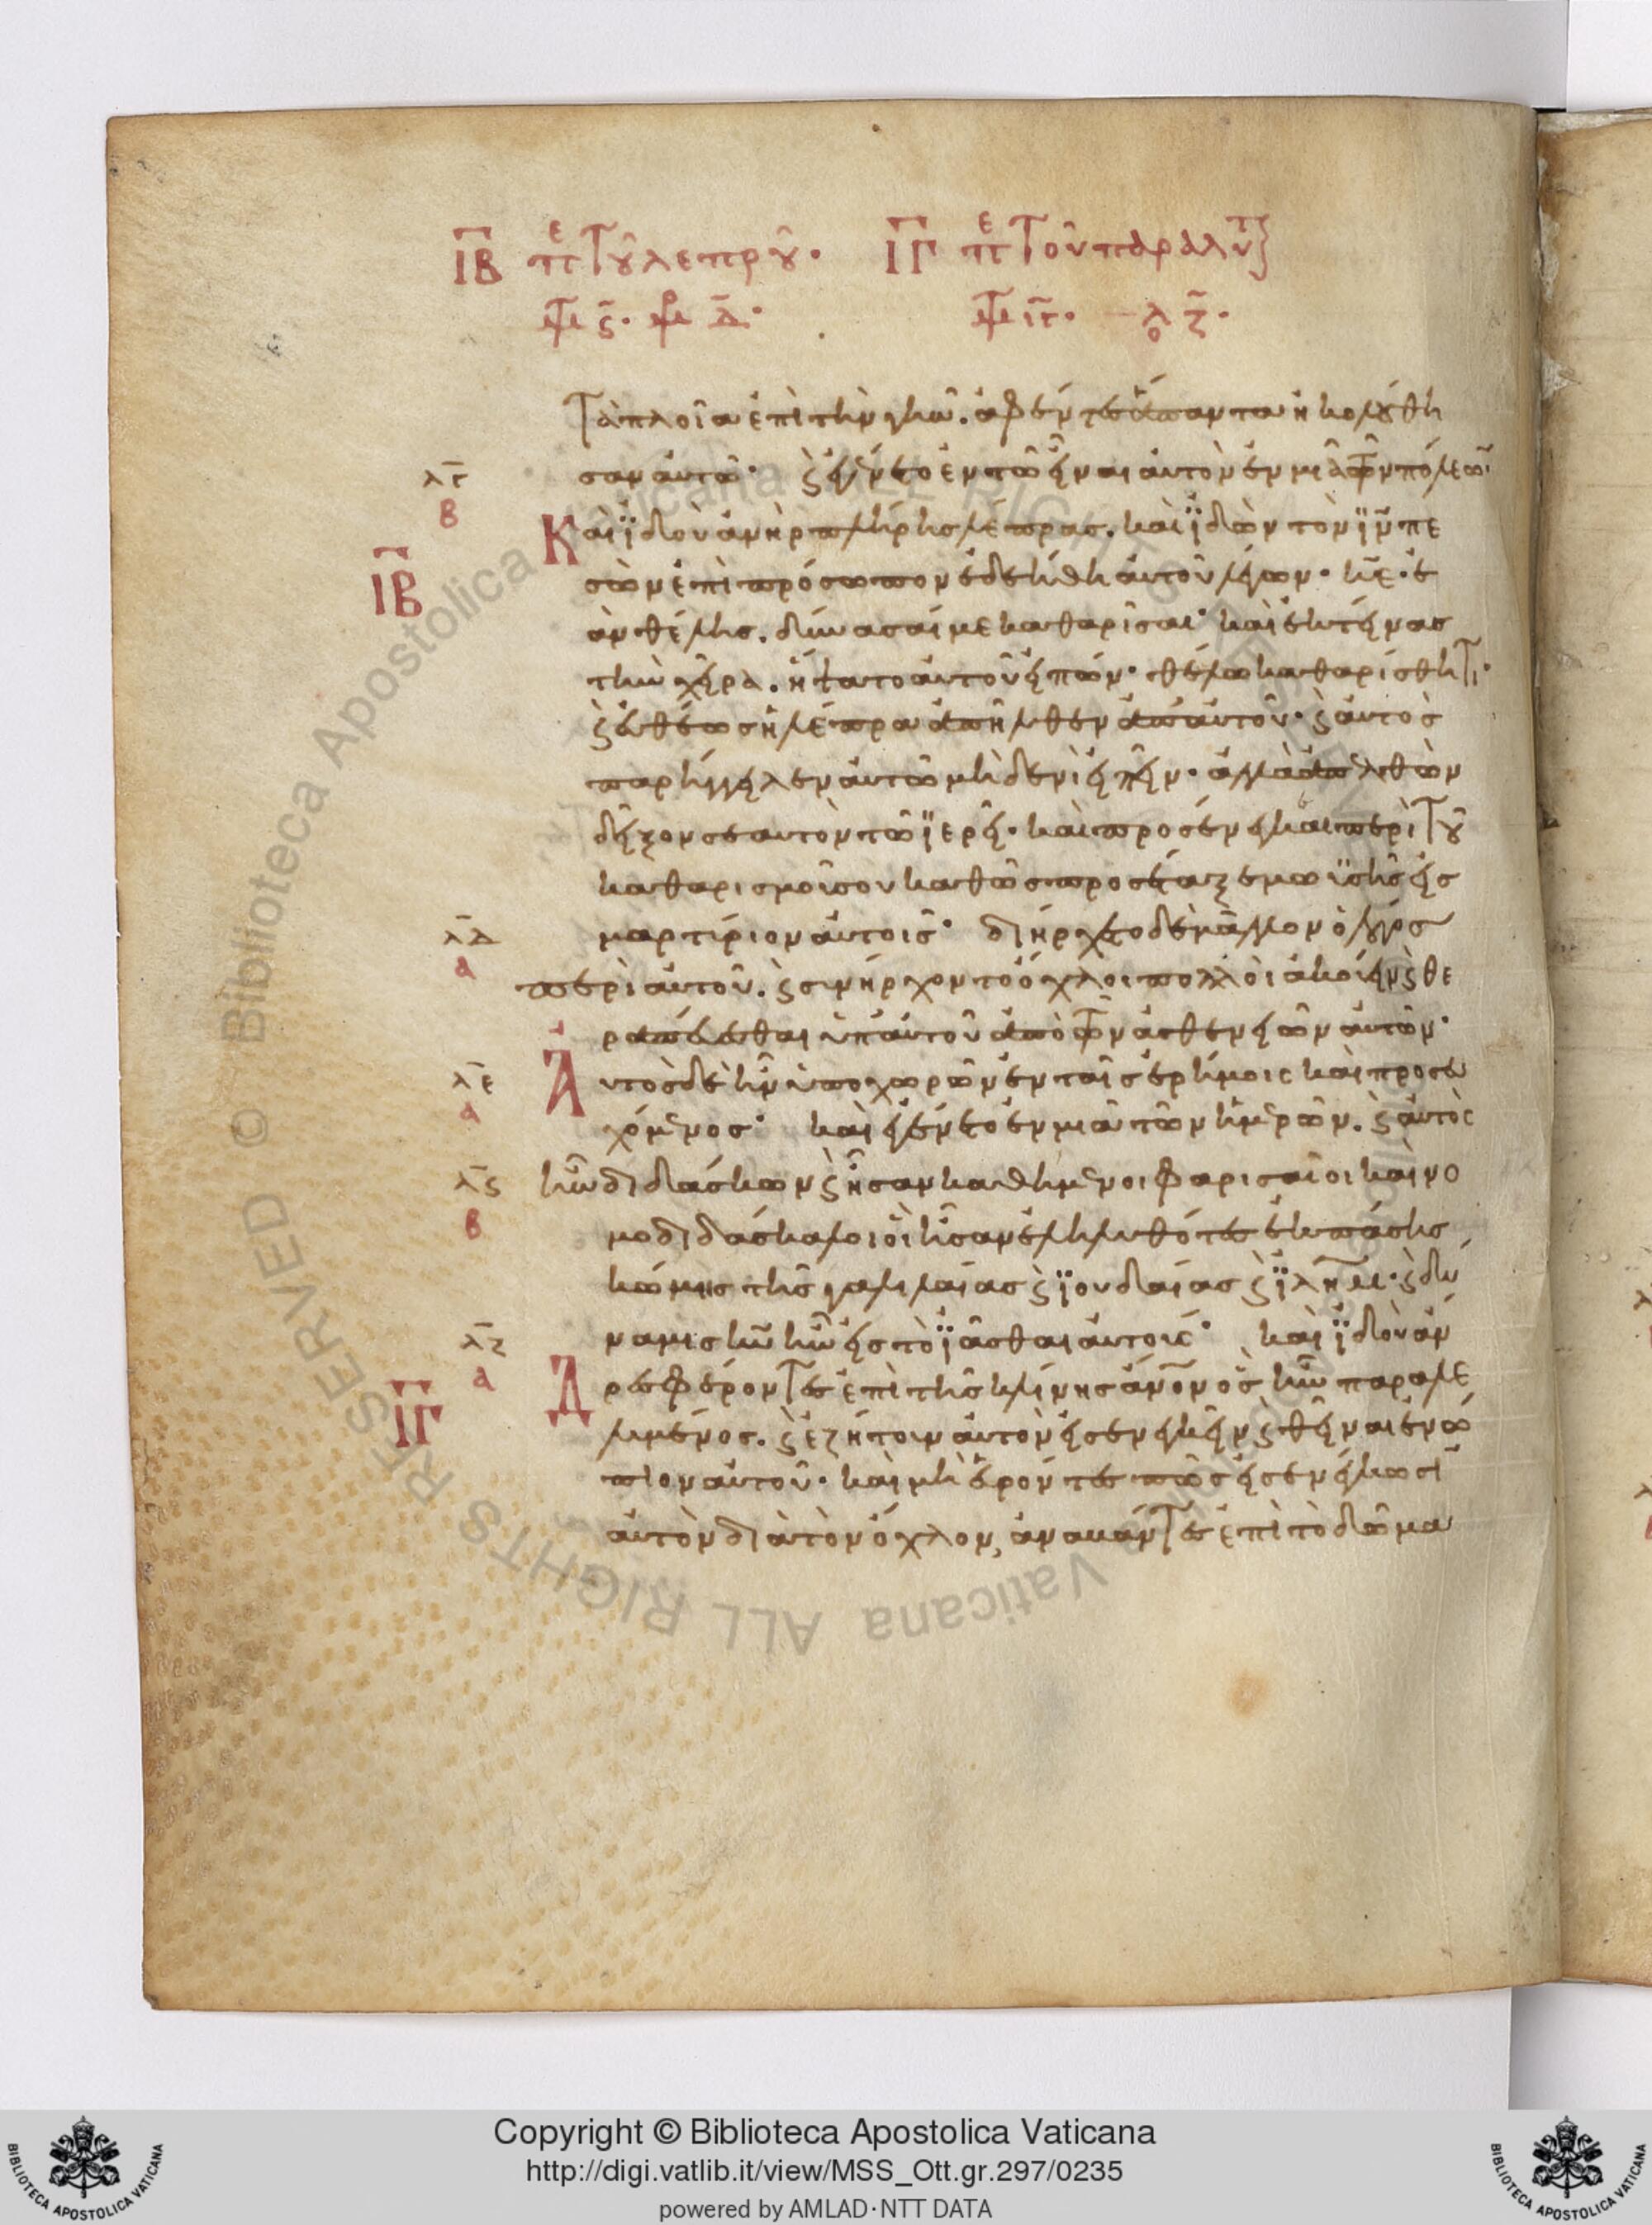 ΙΒ πε Τοῦ λεπροῦ· ΙΓ πε Τοῦ παραλυτ
Μτ ς· Μρ δ· Μτ ιγ· λο ζ·
Τὰ πλοῖα ἐπὶ τὴν γῆν. ἀφέντες ἅπαντα ἠκολούθη
λγ β
σαν αὐτῶ· ϗ ἐγένετο ἐν τῶ εἶναι αὐτὸν ἐν μιᾶ τῶν πόλεων
Καὶ ἰδοὺ ἀνὴρ πλήρης λέπρας. καὶ ἰδὼν τὸν ιν πε
ΙΒ
σὼν ἐπὶ πρόσωπον ἐδεήθη αὐτοῦ λέγων· κε· ἐ
ὰν θέλης. δύνασαί με καθαρίσαι· καὶ ἐκτείνας
τὴν χεῖρα. ἥψατο αὐτοῦ εἰπών· θέλω καθαρίσθητι·
ϗ εὐθέως ἡ λέπρα ἀπῆλθεν ἀπ αὐτοῦ· ϗ αὐτὸς
παρήγγειλεν αὐτῶ μὴδενὶ εἰπεῖν· ἀλλὰ ἀπελθὼν
δεῖξον σεαυτὸν τῶ ἱερεῖ· καὶ προσένεγκαι περὶ Τοῦ
καθαρισμοῖ σου καθὼς προσέταξε μωϋσῆς εἰς
λδ α
μαρτίριον αὐτοῖς· διήρχετο δὲ μᾶλλον ὁ λόγος
περὶ αὐτοῦ. ϗ σινήρχοντο ὄχλοι πολλοὶ ἀκούειν ϗ θε
ραπεύεσθαι ὑπ αὐτοῦ ἀπὸ τῶν ἀσθενειῶν αὐτῶν·
λε α
Αὐτὸς δὲ ἦν ὑποχωρῶν ἐν ταῖς ἐρήμοις καὶ προσευ
χόμενος· καὶ ἐγένετο ἐν μιᾶ τῶν ἡμερῶν. ϗ αὐτὸς
λς β
ἦν διδάσκων ϗ ἦσαν καθήμενοι φαρισαῖοι καὶ νο
μοδιδάσκαλοι οἳ ἦσαν ἐλήλυθότες ἐκ πάσης
κώμης τῆς γαλιλαίας ϗ ἰουδαίας ϗ ιλημ· ϗ δύ
λζ α
ναμις κυ ἦν εἰς τὸ ἰᾶσθαι αὐτοις· καὶ ἰδοὺ ἄν
ΙΓ
Δρες φέροντες ἐπὶ τῆς κλίνης ἀνον ὃς ἦν παραλε
λιμένος. ϗ ἐζήτουν αὐτὸν εἰσενεγκεῖν ϗ θεῖναι ἐνώ
πιον αὐτοῦ· καὶ μὴ εὑρόντες πῶς εἰσενέγκωσι
αὐτὸν διὰ τὸν ὄχλον, ἀναβάντες ἐπὶ τὸ δῶμα
Copyright © Biblioteca Apostolica Vaticana
http://digi.vatlib.it/view/MSS_Ott.gr.297/0235
powered by AMLAD·NTT DATA